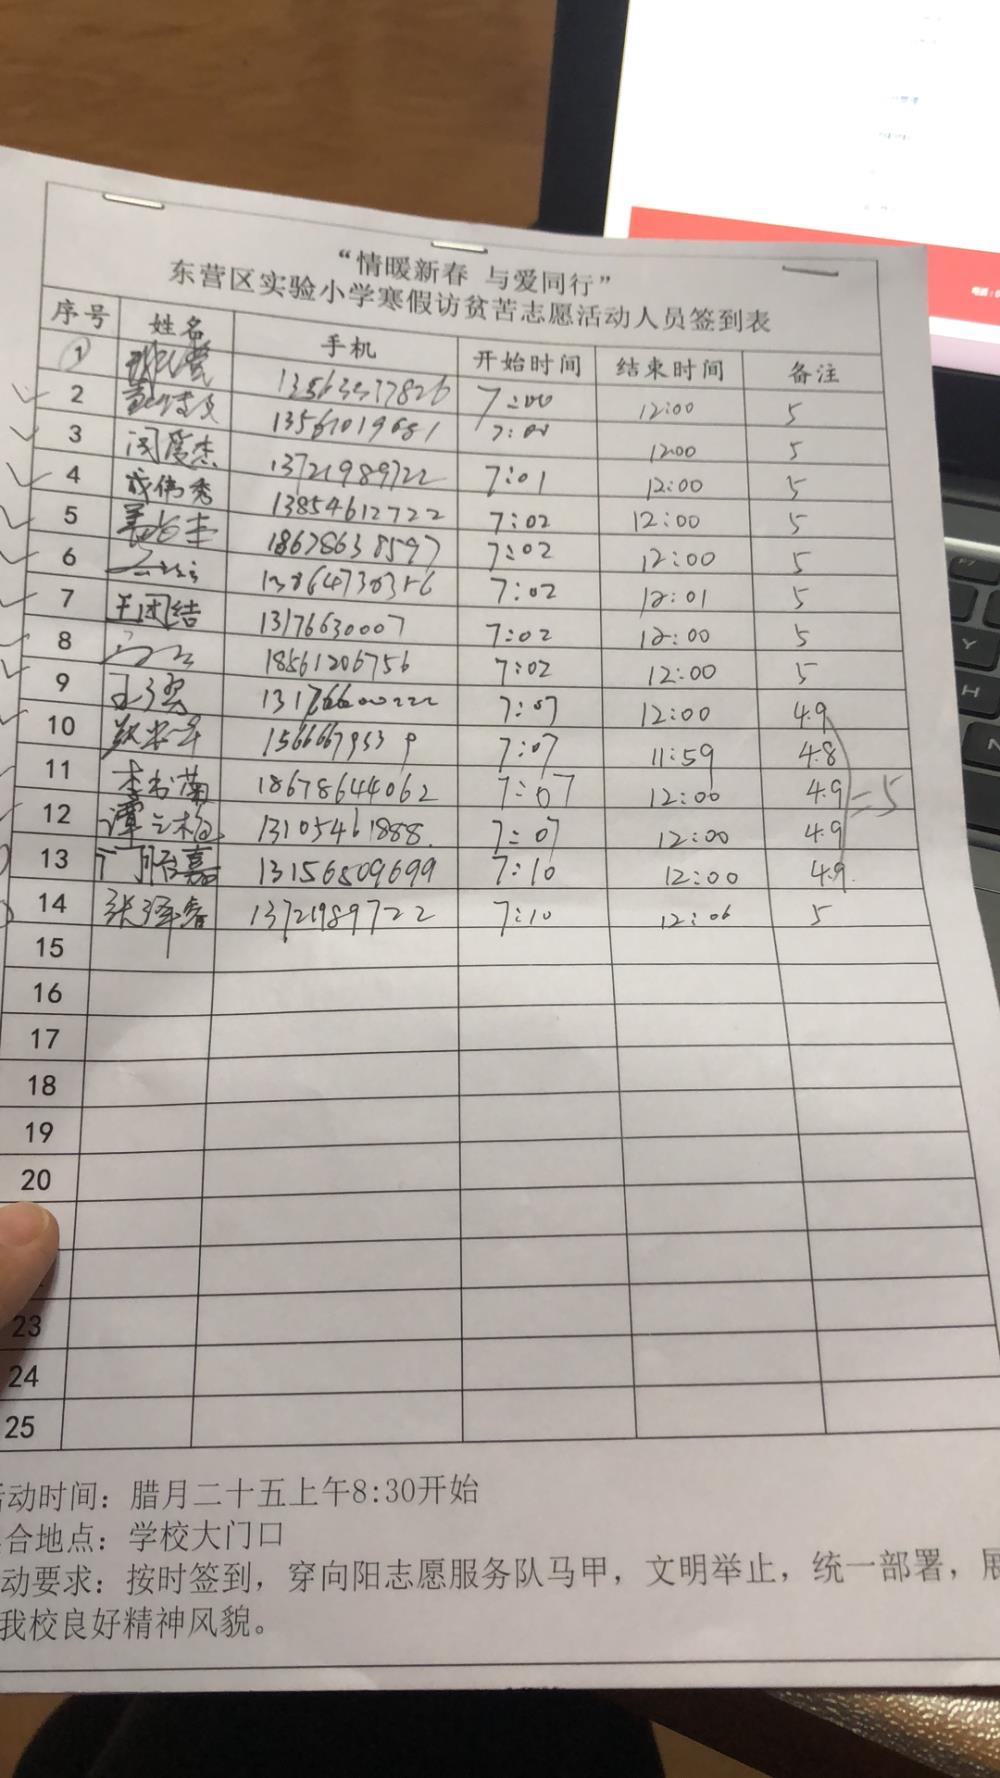 “情暖新春 与爱同行”
东营区实验小学寒假访贫苦志愿活动人员签到表
序号 姓名 手机 开始时间 结束时间 备注
1 7:00 12:00 5
2 13561019681 7:00 12:00 5
3 闫爱杰 13721989722 7:01 12:00 5
4 成伟秀 13854612722 7:02 12:00 5
5 18678638597 7:02 12:00 5
6 7:02 12:01 5
7 王团结 13176630007 7:02 12:00 5
8 18561206756 7:02 12:00 5
9 7:07 12:00 4.9
10 7:07 11:59 4.8
11 李书菊 18678644062 7:07 12:00 4.9 =5
12 13105461888 7:07 12:00 4.9
13 13156509699 7:10 12:00 4.9
14 13721989722 7:10 12:06 5
15
16
17
18
19
20
23
24
25
活动时间：腊月二十五上午8:30开始
合地点：学校大门口
动要求：按时签到，穿向阳志愿服务队马甲，文明举止，统一部署，展
我校良好精神风貌。